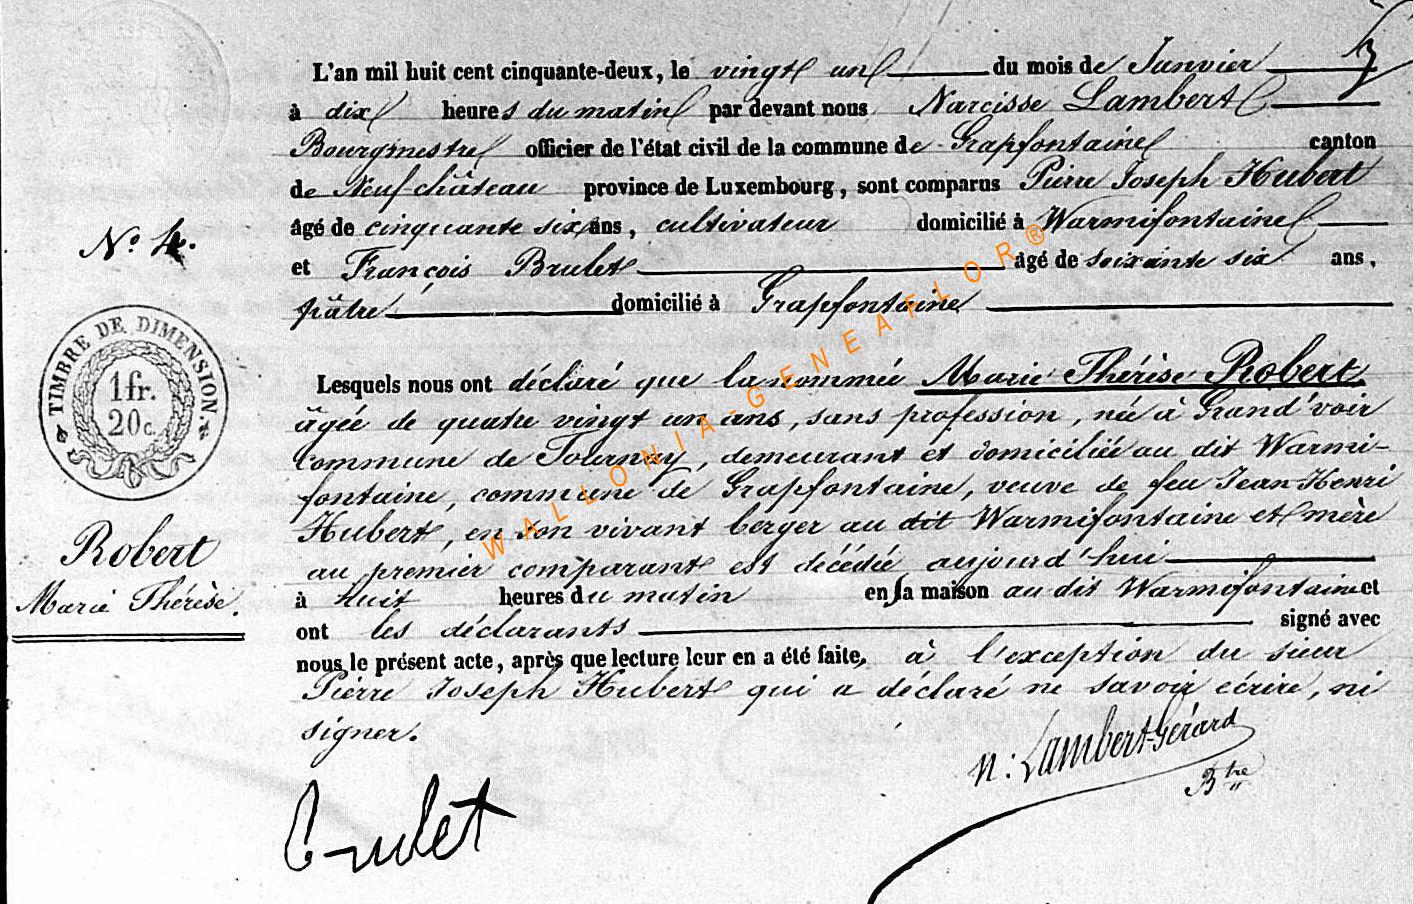 L'an mil huit cent cinquante-deux, le vingt un du mois de Janvier
à dix heures du matin par devant nous Narcisse Lambert
Bourgmestre officier de l'état civil de la commune de Grapfontaine canton
de Neufchâteau province de Luxembourg, sont comparus Pierre Joseph Hubert
âgé de cinquante six ans, cultivateur domicilié à Warmifontaine
et François Brulet âgé de soixante six ans,
pâtre domicilié à Grapfontaine
Lesquels nous ont déclaré que la nommée Marie Thérèse Robert
âgée de quatre vingt un ans, sans profession, née à Grand'voir
Commune de Tournay, demeurant et domiciliée au dit Warmi-
fontaine, commune de Grapfontaine, veuve de feu Jean Henri
Hubert, en son vivant berger au dit Warmifontaine et mère
au premier comparant est décédée aujourd'hui
à huit heures du matin en sa maison au dit Warmifontaine et
ont les déclarants signé avec
nous le présent acte, après que lecture leur en a été faite, à l'exception du sieur
Pierre Joseph Hubert qui a déclaré ne savoir écrire, ni
signer.
N: Lambert-Gérard
Btre
Brulet
No. 4.
TIMBRE DE DIMENSION
1 fr.
20 c.
Robert
Marie Thérèse.
WALLONIA-GENEAFLOR®